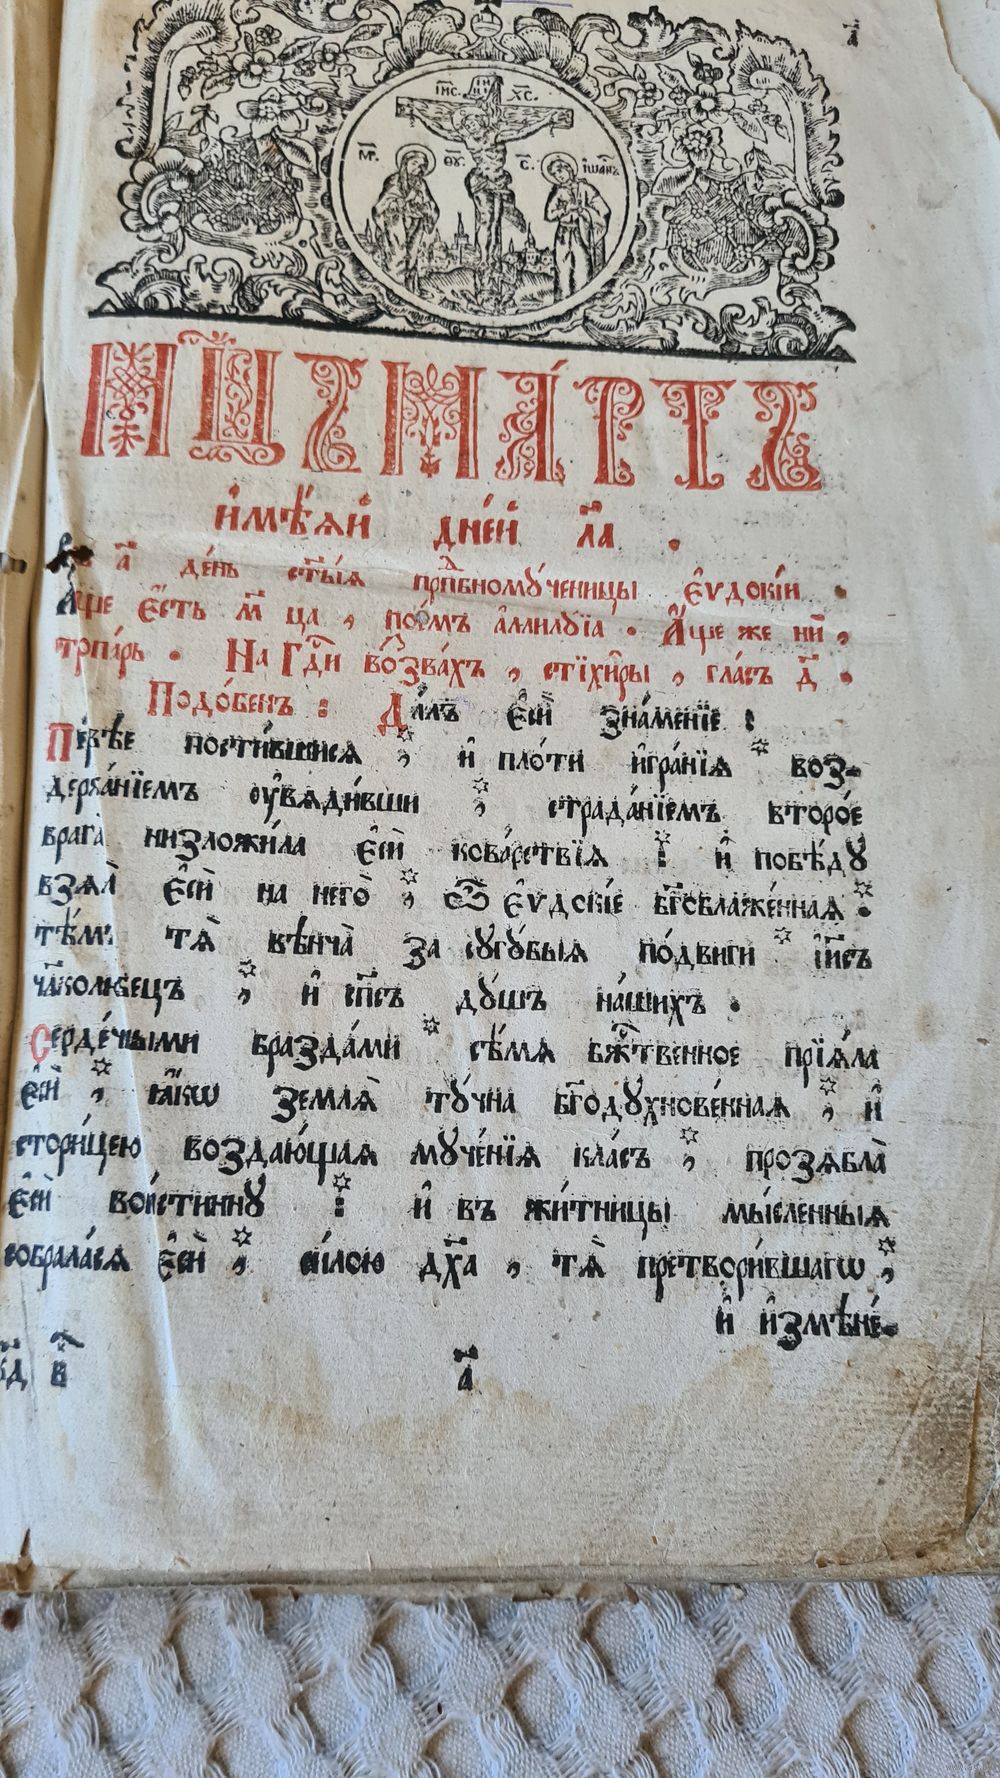 а҃
І҆НЦІ
І҆И҃С. Х҃С.
М҃Р. Ѳ҃У. С҃. І҆ѠА́ННЪ
МЦ҃Ъ МА́РТЪ
и҆мѣ́ѧй дне́й л҃а .
Въ а҃ де́нь ст҃ы́ѧ прпⷣбному́ченицы є҆ѵдокі́и .
А҆́ще є҆́сть м҃ ца , пое́мъ а҆ллилꙋ́їа . А҆́ще же ни̑ ,
тропа́рь . На Гдⷭ҇и возва́хъ , стїхи̑ры , гла́съ д҃ .
Подо́бенъ : Да́лъ є҆сѝ зна́менїе :
Пе́рвѣе пости́вшисѧ , и҆ пло́ти и҆гра́нїѧ воз-
держа́нїемъ ᲂу҆вѧди́вши , страда́нїемъ второ́е
врага̀ низложи́ла є҆сѝ кова́рствїѧ : и҆ побѣ́дꙋ
взѧла̀ є҆сѝ на него̀ , ѽ є҆ѵдокі́е бг҃облаже́ннаѧ .
тѣ́мъ тѧ̀ вѣнча̀ за сꙋгꙋ́быѧ по́двиги і҆и҃съ
чл҃колю́бецъ , и҆ сп҃съ дꙋ́шъ на́шихъ .
Серде́чными бразда́ми сѣ́мѧ бж҃твенное прїѧ́ла
є҆сѝ , ꙗ҆́кѡ землѧ̀ тꙋ́чна бг҃одꙋхнове́ннаѧ , и҆
стори́цею воздаю́щаѧ мꙋче́нїѧ кла́съ , прозѧбла̀
є҆сѝ вои́стиннꙋ : и҆ въ жи́тницы мы́сленныѧ
собрала́сѧ є҆сѝ , си́лою дх҃а , тѧ̀ претвори́вшагѡ ,
и҆ и҆змѣне́-
в҃
а҃